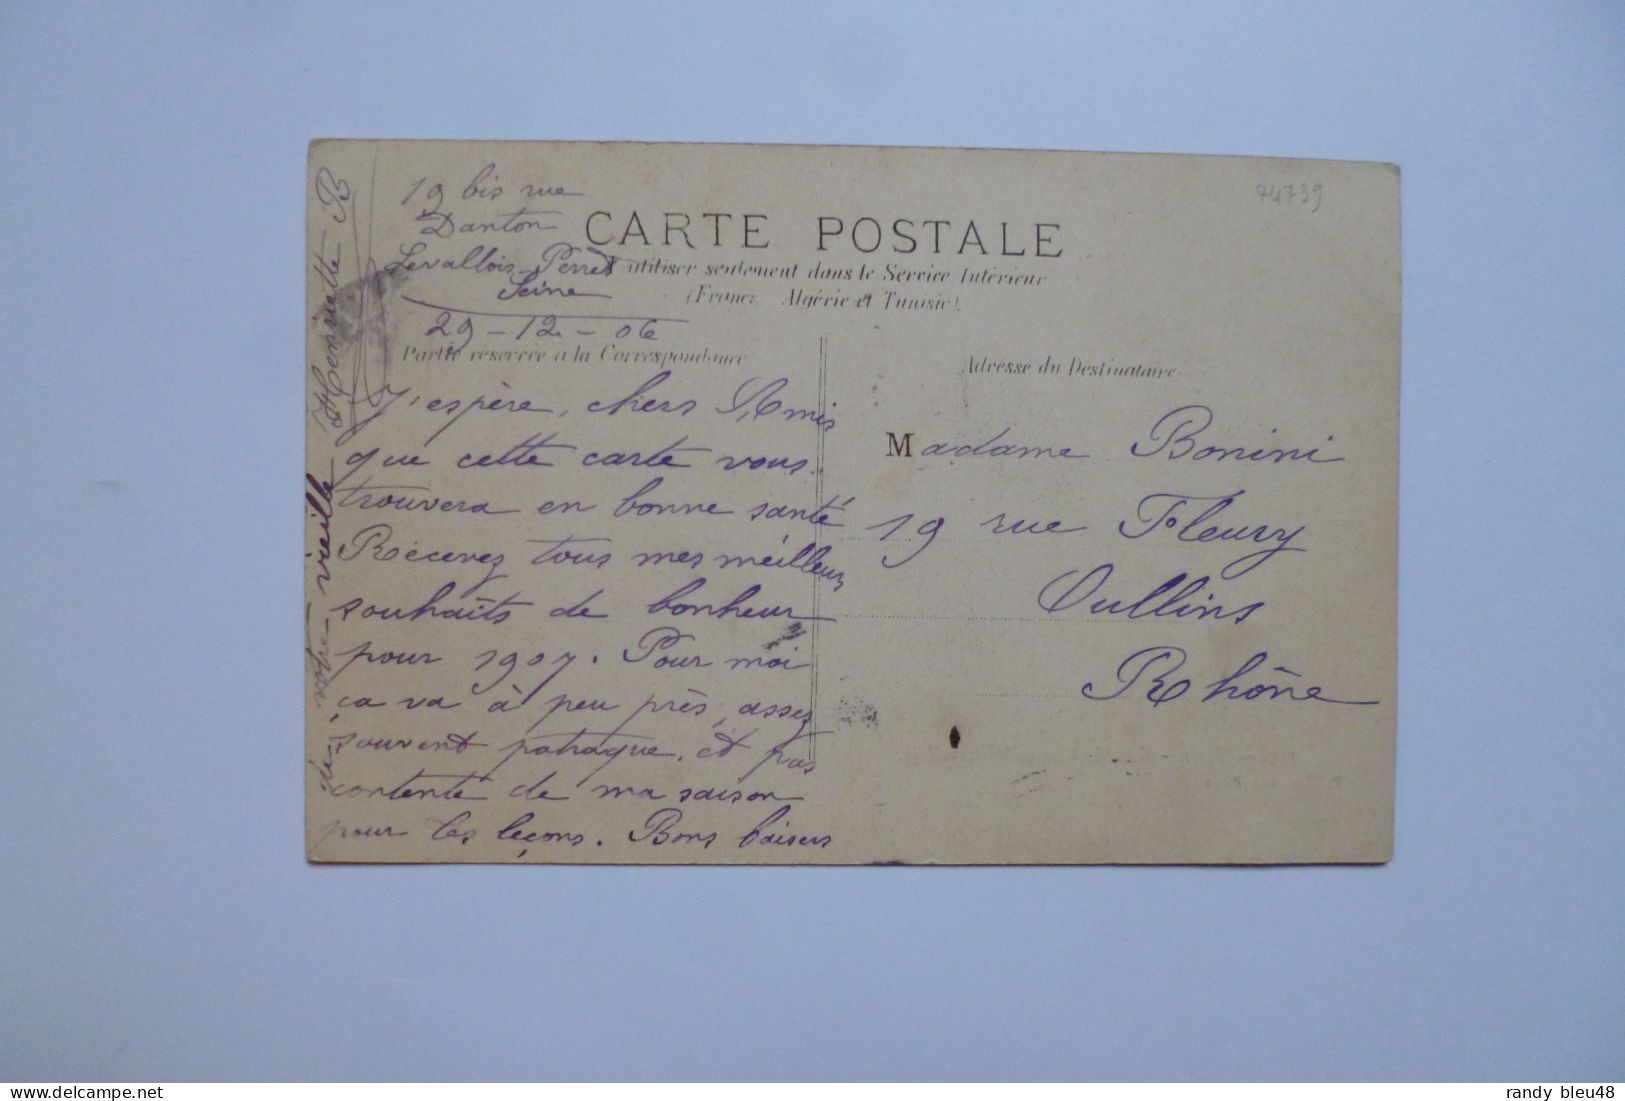 19 bis rue
Danton
Levallois-Perret
Seine
29-12-06
44739
CARTE POSTALE
A utiliser seulement dans le Service Intérieur
(France Algérie et Tunisie).
Partie réservée à la Correspondance
J'espère, chers Amis
que cette carte vous
trouvera en bonne santé
Recevez tous mes meilleurs
souhaits de bonheur
pour 1907. Pour moi
ça va à peu près, assez
souvent patraque, et pas
contente de ma saison
pour les leçons. Bons baisers
de votre vieille Henriette B
Adresse du Destinataire
Madame Bonini
19 rue Fleury
Oullins
Rhône
randy bleu48